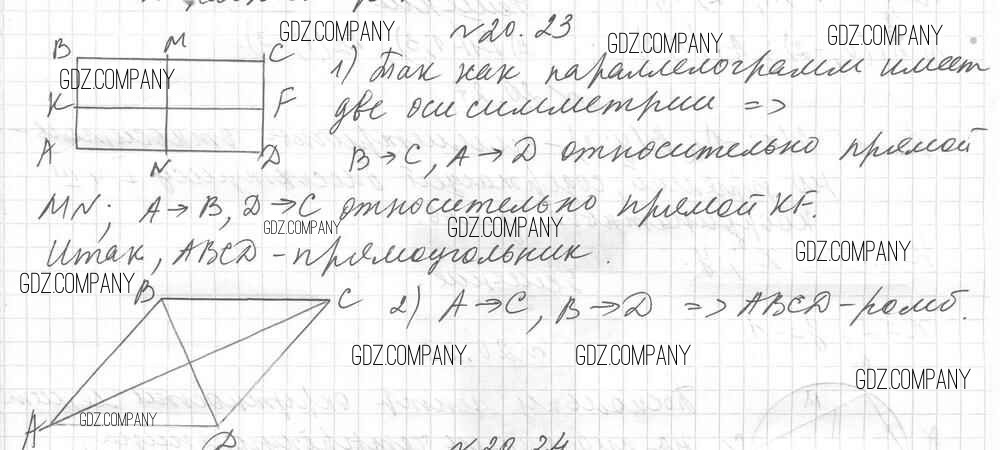 №20.23
1) Так как параллелограмм имеет
две оси симметрии =>
B→C, A→D относительно прямой
MN; A→B, D→C относительно прямой KF.
Итак, ABCD - прямоугольник.
2) A→C, B→D => ABCD - ромб.
B M C
K F
A N D
B C
A D
№20.24
GDZ.COMPANY
GDZ.COMPANY
GDZ.COMPANY
GDZ.COMPANY
GDZ.COMPANY
GDZ.COMPANY
GDZ.COMPANY
GDZ.COMPANY
GDZ.COMPANY
GDZ.COMPANY
GDZ.COMPANY
GDZ.COMPANY